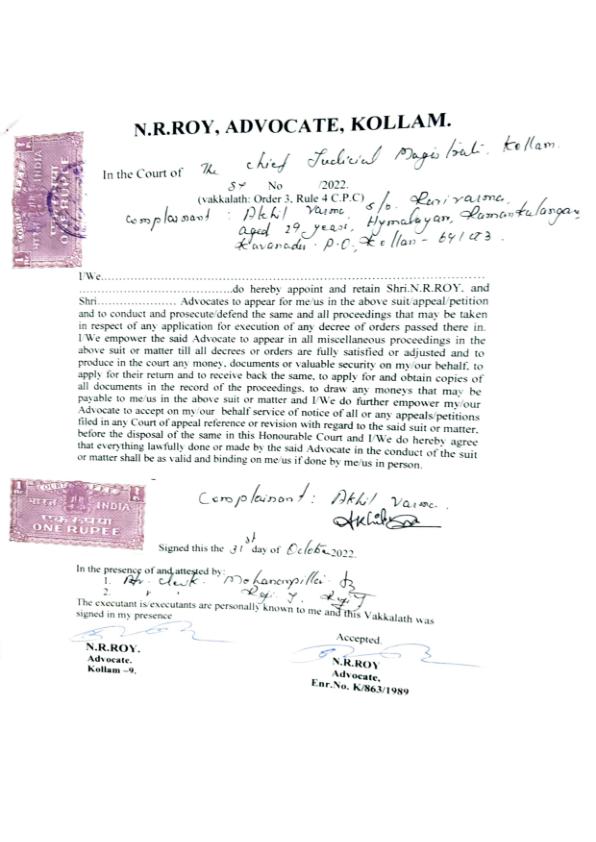 N.R.ROY, ADVOCATE, KOLLAM.
In the Court of The Chief Judicial Magistrate. Kollam.
ST No /2022.
(vakkalath: Order 3, Rule 4 C.P.C)
Complainant : Akhil Varma, s/o. Ravi varma,
aged 29 years, Hymalayan, Ramankulangara,
Kavanadu. P.O, Kollam -
I/We
do hereby appoint and retain Shri.N.R.ROY. and
Shri Advocates to appear for me/us in the above suit/appeal/petition
and to conduct and prosecute/defend the same and all proceedings that may be taken
in respect of any application for execution of any decree of orders passed there in.
I/We empower the said Advocate to appear in all miscellaneous proceedings in the
above suit or matter till all decrees or orders are fully satisfied or adjusted and to
produce in the court any money, documents or valuable security on my/our behalf, to
apply for their return and to receive back the same, to apply for and obtain copies of
all documents in the record of the proceedings, to draw any moneys that may be
payable to me/us in the above suit or matter and I/We do further empower my/our
Advocate to accept on my/our behalf service of notice of all or any appeals/petitions
filed in any Court of appeal reference or revision with regard to the said suit or matter,
before the disposal of the same in this Honourable Court and I/We do hereby agree
that everything lawfully done or made by the said Advocate in the conduct of the suit
or matter shall be as valid and binding on me/us if done by me/us in person.
Complainant : Akhil Varma.
COURT FEE
1 Re.
भारत INDIA
एक रुपया
ONE RUPEE
COURT FEE
भारत INDIA
एक रुपया
ONE RUPEE
Signed this the 31st day of October 2022.
In the presence of and attested by:
1. Adv. Clerk. Mohananpillai
2. " " Reji. J.
The executant is/executants are personally known to me and this Vakkalath was
signed in my presence
Accepted.
N.R.ROY.
Advocate.
Kollam –9.
N.R.ROY
Advocate,
Enr.No. K/863/1989